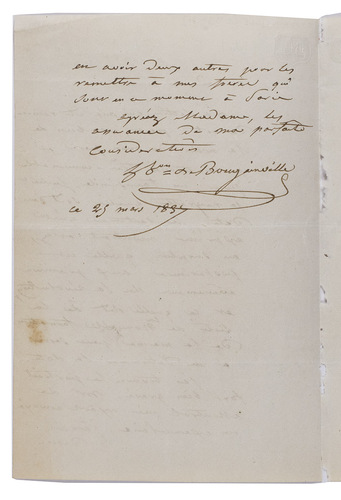 en avoir deux autres pour les
remettre à mes frères qui
sont en ce moment à Paris
agréez Madame, les
assurances de ma parfaite
considération
Bon de Bougainville
ce 25 mars